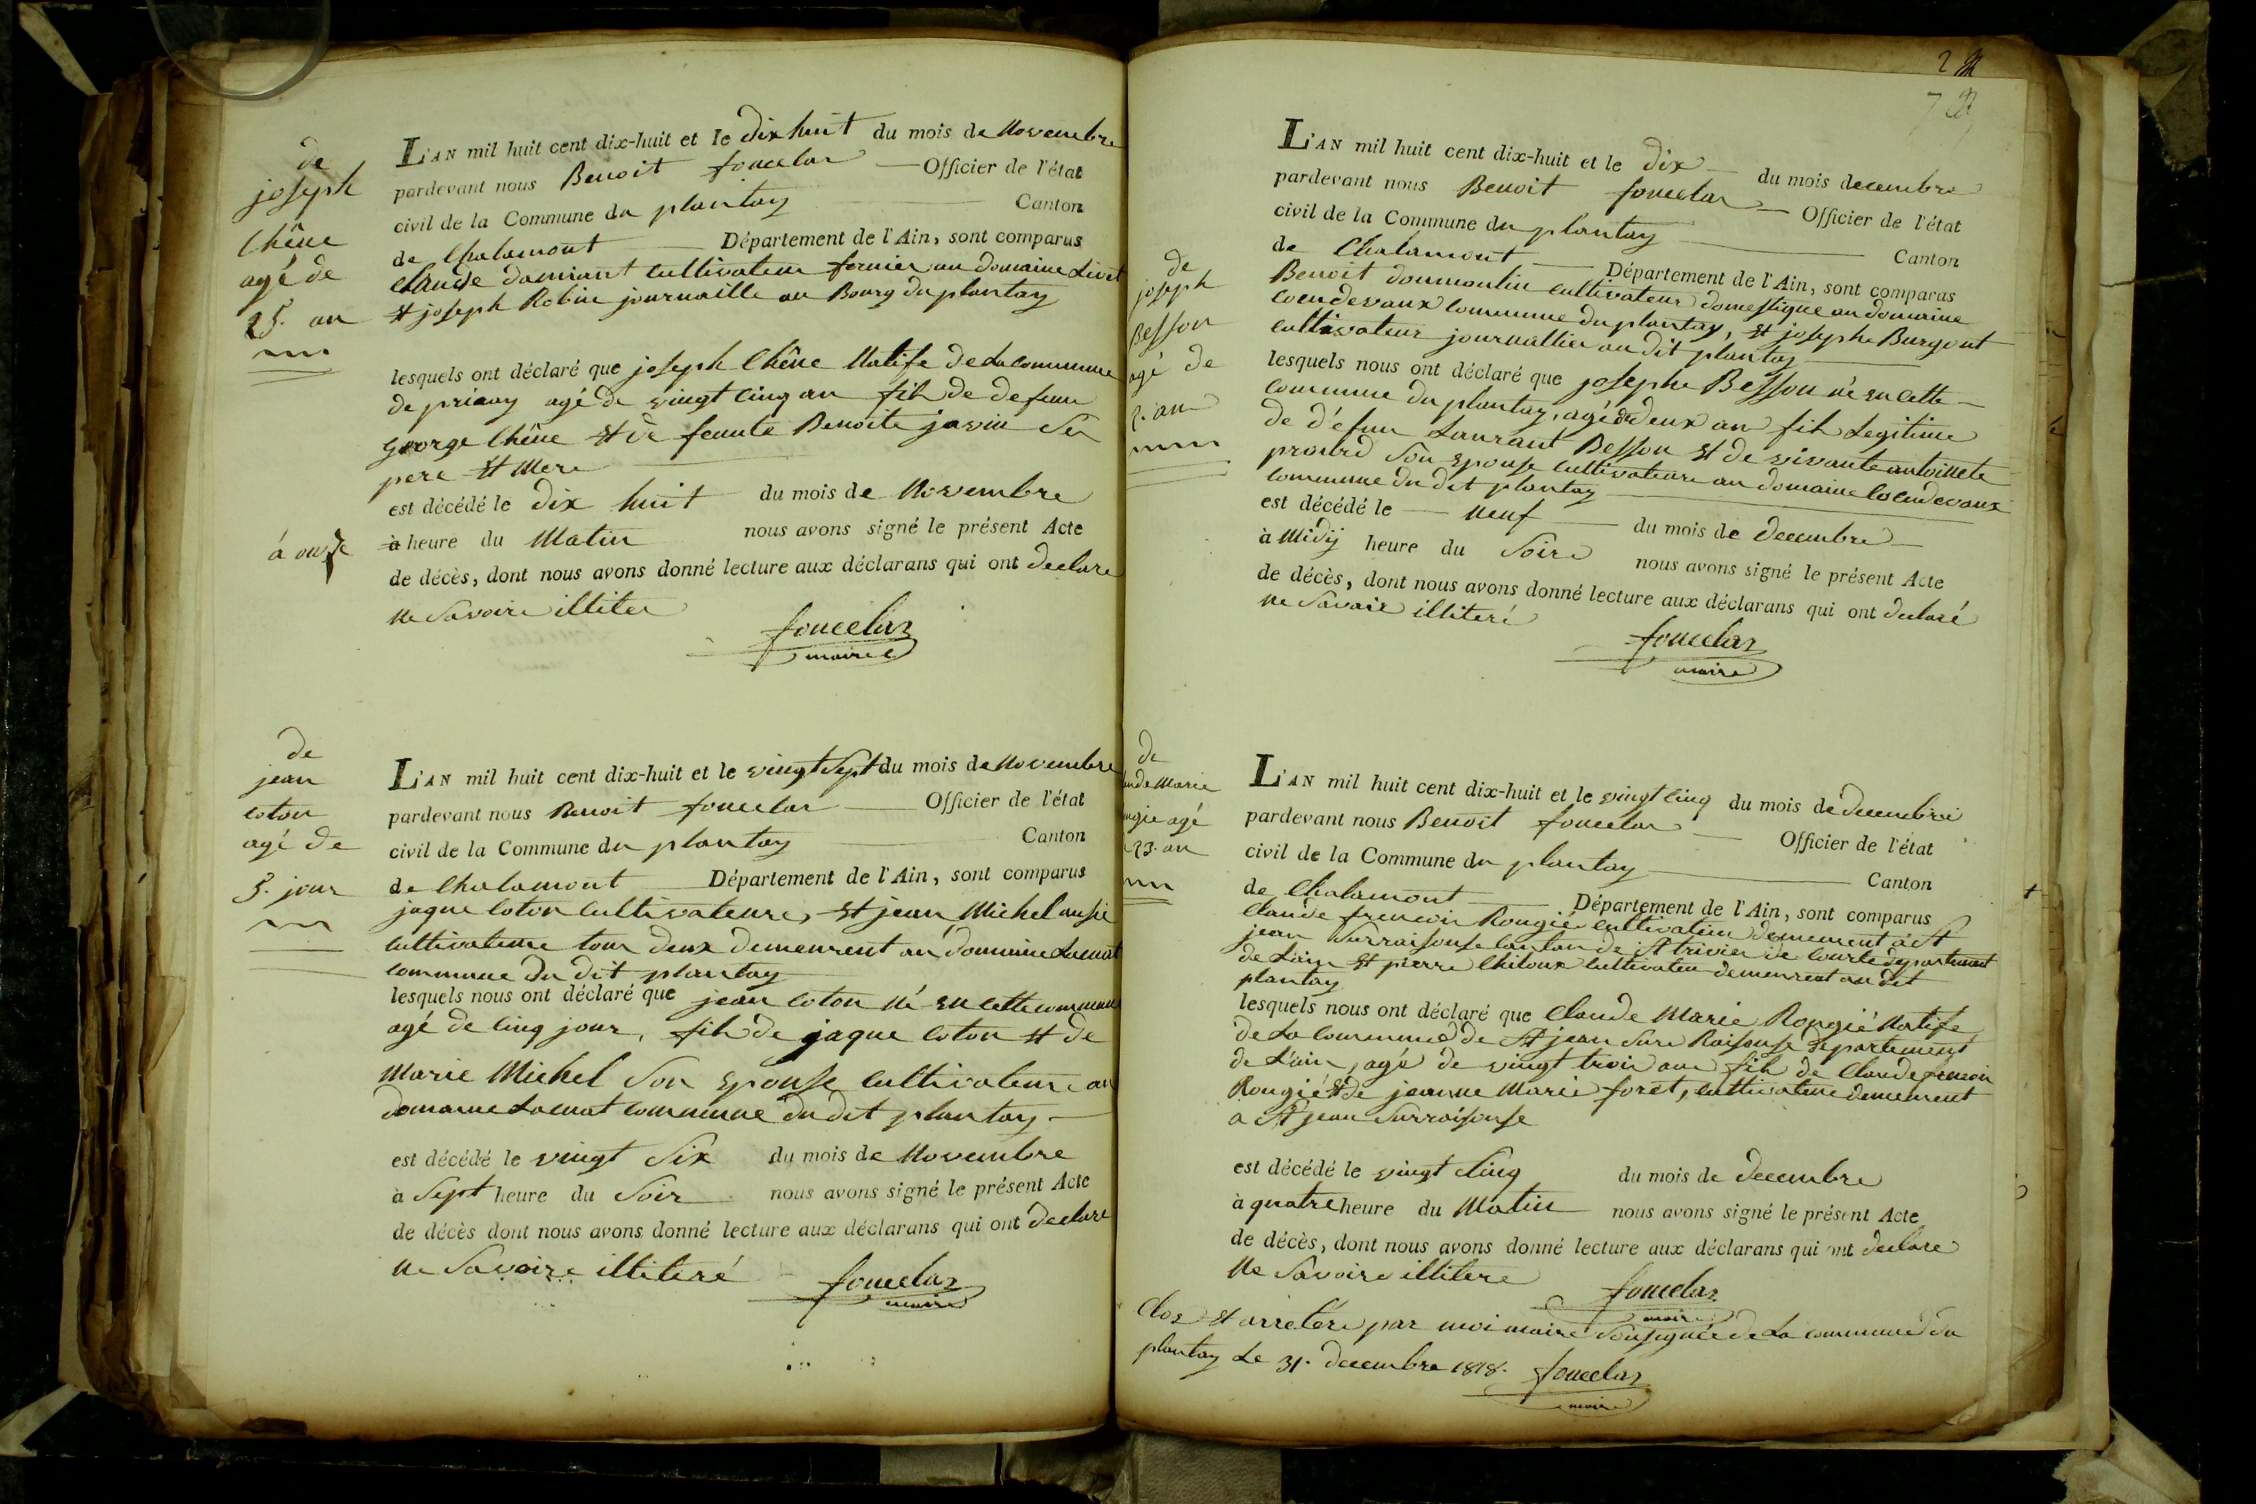 de
joseph
Chêne
agé de
25. an
L'AN mil huit cent dix-huit et le dix huit du mois de Novembre
pardevant nous Benoit fouuelar Officier de l'état
civil de la Commune du plantay Canton
de Chalamont Département de l'Ain, sont comparus
Claude damiant cultivateur fermier au domaine Livet
et joseph Robin journaille au Bourg du plantay
lesquels ont déclaré que joseph Chêne Natife de La commune
de priay agé de vingt cinq an fils de defunu
george Chêne et de feunte Benoite javin Ses
pere et Mere
est décédé le dix huit du mois de Novembre
à onze
à heure du Matin nous avons signé le présent Acte
de décès, dont nous avons donné lecture aux déclarans qui ont declare
ne Savoire illiter
fouuelar
maire
de
jean
coton
agé de
5. jour
L'AN mil huit cent dix-huit et le vingt Sept du mois de Novembre
pardevant nous Benoit fouuelar Officier de l'état
civil de la Commune du plantay Canton
de Chalamont Département de l'Ain, sont comparus
jaque coton cultivateure, et jean Michel ausie
cultivateure tous deux demeurent au domaine
commune du dit plantay
lesquels nous ont déclaré que jean coton né en cette commune
agé de cinq jour, fils de jaque coton et de
Marie Michel Son Epouse cultivateure au
domaine commune du dit plantay
est décédé le vingt Six du mois de Novembre
à Sept heure du Soir nous avons signé le présent Acte
de décès dont nous avons donné lecture aux déclarans qui ont declare
ne Savoire illiteré
fouuelar
maire
2
7
de
joseph
Besson
agé de
2. an
L'AN mil huit cent dix-huit et le dix du mois decembre
pardevant nous Benoit fouuelar Officier de l'état
civil de la Commune du plantay Canton
de Chalamont Département de l'Ain, sont comparus
Benoit doumoulin cultivateur domestique au domaine
commune du plantay, et josephe Burgout
cultivateur journallier au dit plantay
lesquels nous ont déclaré que josephe Besson né en cette
commune du plantay, agé de deux an fils Legitime
de défun Laurant Besson et de vivante antoinete
Son Epouse cultivateure au domaine
commune du dit plantay
est décédé le neuf du mois de decembre
à Midy heure du Soire nous avons signé le présent Acte
de décès, dont nous avons donné lecture aux déclarans qui ont declaré
ne Savoir illiteré
fouuelar
maire
de
Marie
agé
23. an
L'AN mil huit cent dix-huit et le vingt cinq du mois de decembre
pardevant nous Benoit fouuelar Officier de l'état
civil de la Commune du plantay Canton
de Chalamont Département de l'Ain, sont comparus
Claude Rougié cultivateur demeurent à St
jean Surraisouse canton de St trivier de courte departement
de Lain et pierre Chiloux cultivateu demeurent au dit
plantay
lesquels nous ont déclaré que Claude Marie Rougié Natife
de La commune de St jean Sure Raisouse departement
de Lain, agé de vingt troi an fils de Claude
Rougié et de jeanne Marie foret, cultivateure demeurent
a St jean Surraisouse
est décédé le vingt Cinq du mois de decembre
à quatre heure du Matin nous avons signé le présent Acte
de décès, dont nous avons donné lecture aux déclarans qui ont declare
Ne Savoire illitere
fouuelar
maire
Clos et arretere par moi maire Sousignée de La commune du
plantay Le 31. decembre 1818. fouuelar
maire